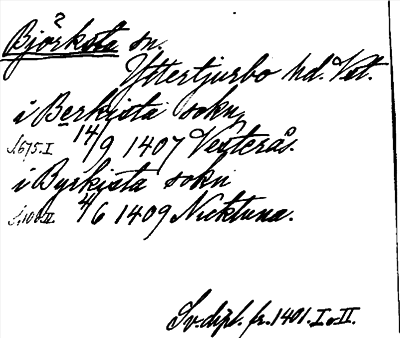 Björksta sn.
Yttertjurbo hd. Vst.
i Berkista sokn
S. 675. I 14/9 1407 Vesterås.
i Byrkista sokn
S. 100. II 4/6 1409 Nicktuna.
Sv. dipl. fr. 1401. I o II.